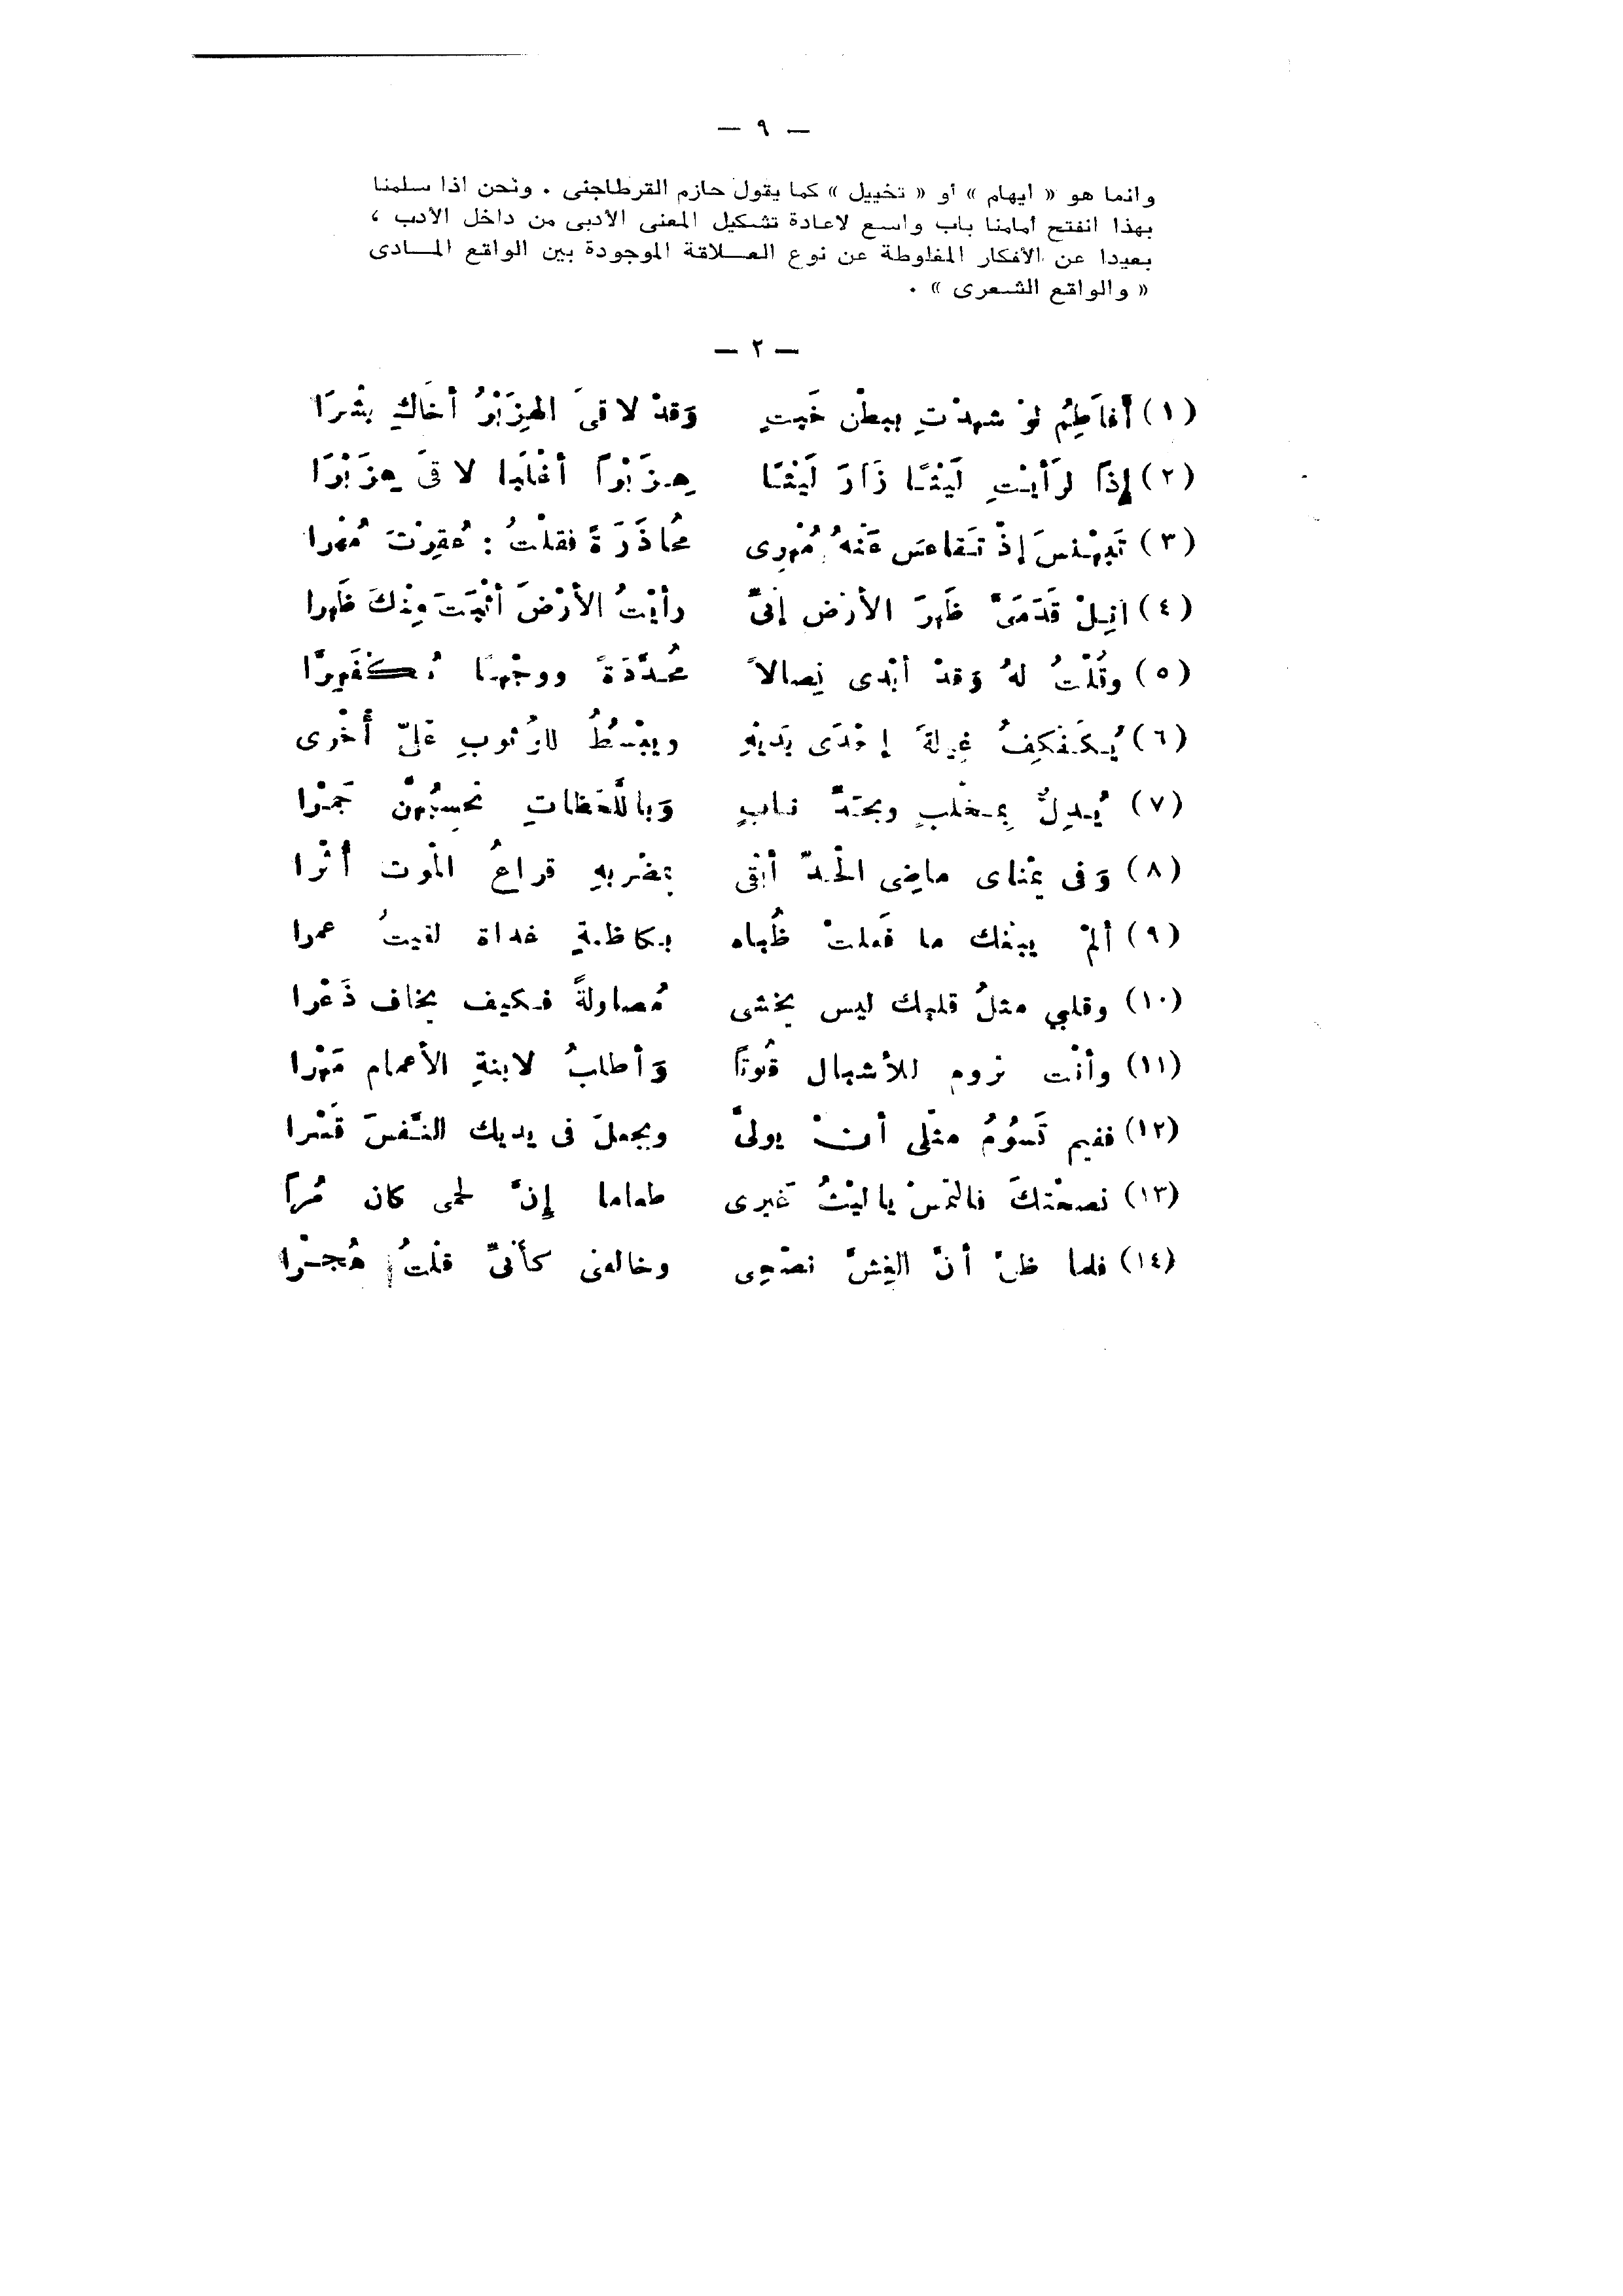 — ٩ —
وانما هو « ايهام » أو « تخييل » كما يقول حازم القرطاجنى . ونحن اذا سلمنا
بهذا انفتح أمامنا باب واسع لاعادة تشكيل المعنى الأدبى من داخل الأدب ،
بعيدا عن الأفكار المغلوطة عن نوع العـــلاقة الموجودة بين الواقع المـــادى
« والواقع الشعرى » .
— ٢ —
(١) أَفاَطِمُ لوْ شهدْتِ ببطْن خَبتٍ وَقدْ لاقىَ الهِزَبْرُ أخَاكِ بشْرَا
(٢) إِذاً لرَأيْتِ لَيْثًا زَارَ لَيْثًا هِزَبْراً أغْلَبا لاقىَ هِزَبْرَا
(٣) تَبهْنسَ إذْ تَقاعسَ عَنْهُ مُهْرِى مُحاذَرَةً فقلْتُ : عُقِرْتَ مُهْرا
(٤) أنِلْ قَدَمَىَّ ظَهرَ الأرْض إنىِّ رأيْتُ الأرْضَ أثْبَتَ مِنْكَ ظَهرا
(٥) وقُلْتُ لهُ وَقدْ أبْدى نِصالاً مُحدَّدَةً ووجْهـًا مُكفَهِرَّا
(٦) يُكَفكِفُ غِيلةً إحْدَى يَديْهِ ويبْسُطُ للوُثوبِ علىّ أُخْرى
(٧) يُدِلُّ بِمخْلبٍ وبحَدِّ نابٍ وَباللَّحَظاتِ تحسِبُهنّ جَمرْا
(٨) وَفى يمْناى ماضِى الْحدّ أبْقى بمضْربهِ قراعُ الْموت أُثْرا
(٩) ألمْ يبلغك ما فَعلتْ ظُباه بكاظمةٍ غداة لقيتُ عمرا
(١٠) وقلبي مثلُ قلبك ليس يخشى مُصاولةً فكيف يخاف ذَعْرا
(١١) وأنْت تروم للأشبال قُوتاً وَأطلبُ لابنةِ الأعمام مَهْرا
(١٢) ففيم تَسُومُ مثْلى أنْ يولىَّ ويجعلَ فى يديك النَّفسَ قَسْرا
(١٣) نصحْتكَ فالتمسْ ياليْثُ غَيرى طعاما إِنَّ لحمى كان مُراً
(١٤) فلما ظنّ أنَّ الغِشَّ نصْحِى وخالفنى كأنىِّ قلْتُ هُجْرا